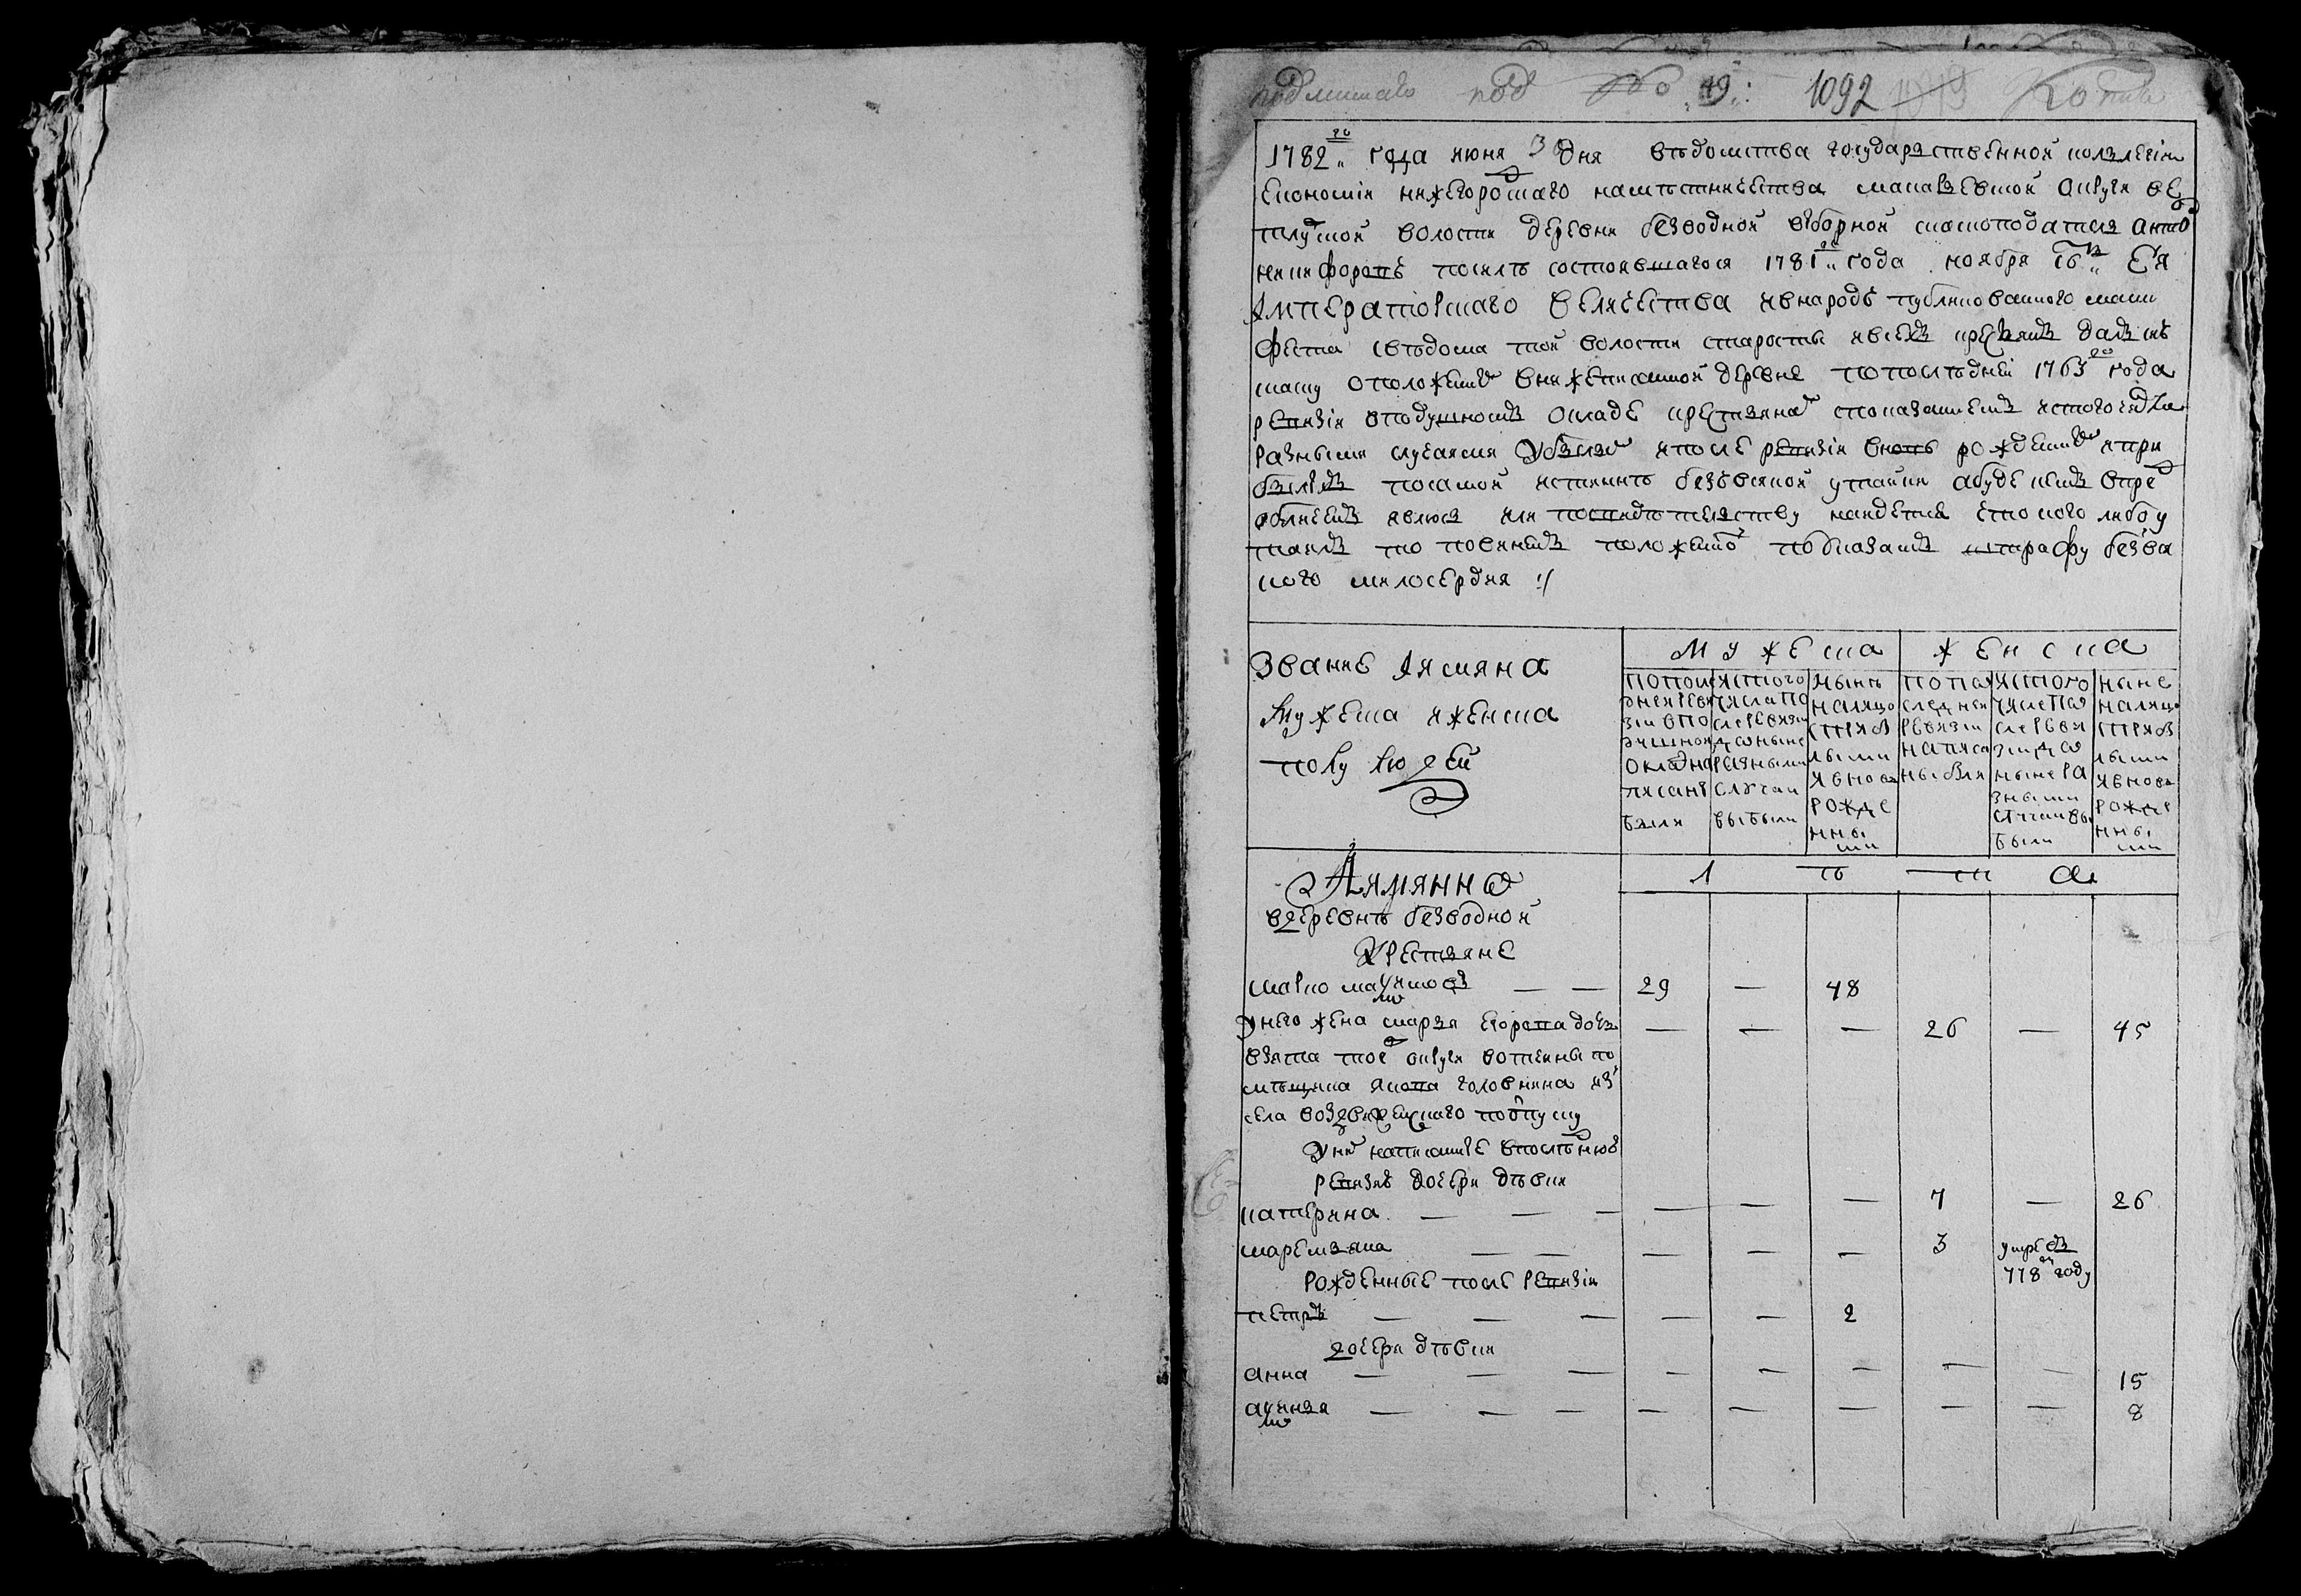 подлиннаго под № 19: 1092 Копия
1782 го года июня 3 дня ведомства государственной коллегии
економии нижегородскаго наместничества макарьевской округи ве
тлужской волости деревни безводной выборной скаскоподатель антон
никифоровъ после состоявшагося 1781 го года ноября 16 гo Ея
Императорскаго Величества и в народъ публикованного мани
феста с ведома той волости старосты и всехъ крестьянъ далъ сию
скаску о положенныхъ в нижеписанной деревне по последней 1763 го года
ревизии в подушномъ окладе крестьянахъ с показаниемъ из того числа
разными случаями убылыхъ и после ревизии вновь рожденныхъ и при
былыхъ по самой истинне без всякой утайки а буде кемъ впредь
обличенъ явлюсь или по свидетельству найдется что кого либо у
таилъ то повиненъ положенному по указамъ штрафу без вся
кого милосердия :/
Звание имяна
мужеска и женска
полу людей
мужеска женска
по последней ревизии в подушномъ окладе написаны были
из того числа после ревизии до ныне разными случаи выбыли
ныне на лицо с прибылыми и вновь рожденными
по последней ревизии написаны были
из того числа после ревизии до ныне разными случаи выбыли
ныне на лицо с прибылыми и вновь рожденными
Аимянно
лета
в деревне безводной
Крестьяне
марко 29 — 48
У него жена марья егорова дочь — — — 26 — 45
взята той округи вотчины по
мещика якова головнина из
села воздвиженскаго по отпуску
У нихъ написанные в последнюю
ревизию дочери девки
катерина — — — 7 — 26
маремьяна — — — 3 умре въ 778 м году
Рожденные после ревизии
петръ — — 2
дочери девки
анна — — — — — 15
акулина — — — — — 8